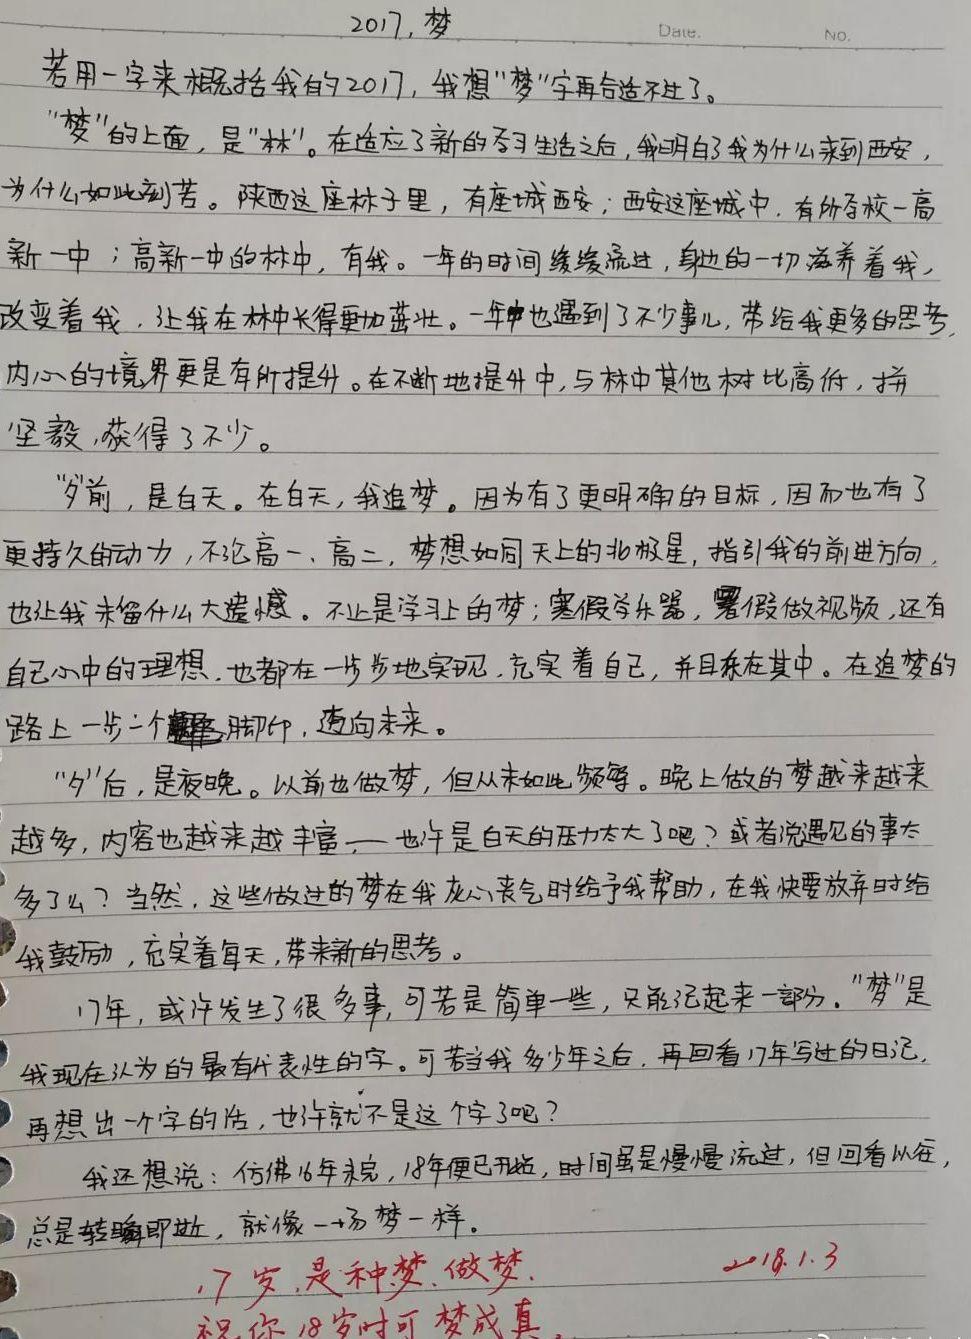 2017，梦
Date.
No.
若用一字来概括我的2017，我想"梦"字再合适不过了。
"梦"的上面，是"林"。在适应了新的学习生活之后，我明白了我为什么来到西安，
为什么如此刻苦。陕西这座林子里，有座城西安；西安这座城中，有所学校一高
新一中；高新一中的林中，有我。一年的时间缓缓流过，身边的一切滋养着我，
改变着我，让我在林中长得更加茁壮。一年中也遇到了不少事儿，带给我更多的思考，
内心的境界更是有所提升。在不断地提升中，与林中其他树比高低，拼
坚毅，获得了不少。
"夕"前，是白天。在白天，我追梦。因为有了更明确的目标，因而也有了
更持久的动力，不论高一、高二，梦想如同天上的北极星，指引我的前进方向，
也让我未留什么大遗憾。不止是学习上的梦；寒假学乐器，暑假做视频，还有
自己心中的理想，也都在一步步地实现，充实着自己，并且乐在其中。在追梦的
路上一步一个脚印，迈向未来。
"夕"后，是夜晚。以前也做梦，但从未如此频繁。晚上做的梦越来越来
越多，内容也越来越丰富——也许是白天的压力太大了吧？或者说遇见的事太
多了么？当然，这些做过的梦在我灰心丧气时给予我帮助，在我快要放弃时给
我鼓励，充实着每天，带来新的思考。
17年，或许发生了很多事，可若是简单一些，只能记起来一部分。"梦"是
我现在认为的最有代表性的字。可若当我多少年之后，再回看17年写过的日记，
再想出一个字的话，也许就不是这个字了吧？
我还想说：仿佛16年未完，18年便已开始，时间虽是慢慢流过，但回看以往，
总是转瞬即逝，就像一场梦一样。
17岁，是种梦、做梦，
2018.1.3
祝你18岁时可梦成真。